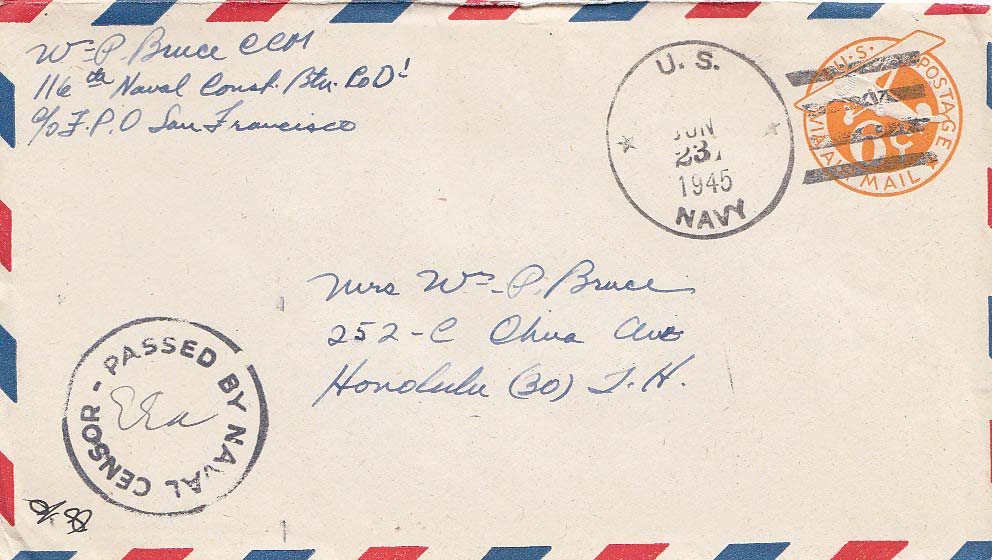 Wm P. Bruce CCM
116th Naval Const. Btn. Co D
c/o F.P.O San Francisco
U. S.
JUN
23
1945
NAVY
U.S. POSTAGE
6¢
VIA AIR MAIL
Mrs Wm P. Bruce
252-C Ohua Ave
Honolulu (30) T.H.
PASSED BY NAVAL CENSOR